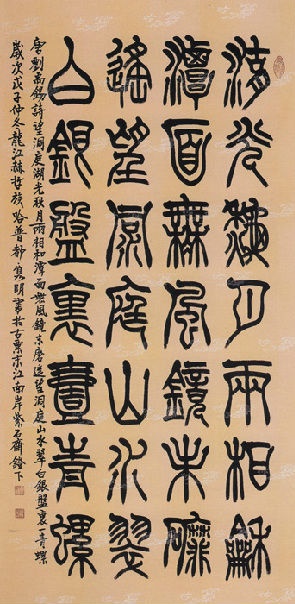 湖光秋月兩相龢
潭面無風鏡未磨
遙望洞庭山水翠
白銀盤裏壹青螺
唐劉禹錫詩望洞庭湖光秋月兩相和潭面無風鏡未磨遙望洞庭山水翠白銀盤裏一青螺
歲次戊子仲冬龍江赫哲族路普都明書於古粟末江南岸紫石齋燈下